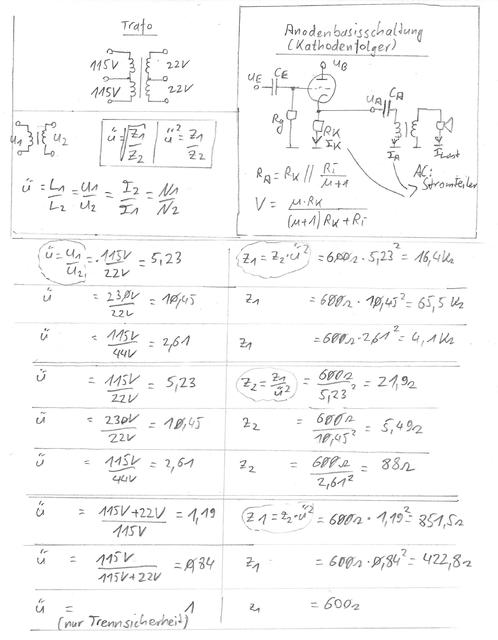 Trafo
115V 22V
115V 22V
U1 U2
ü = √(Z1/Z2) ü² = Z1/Z2
ü = L1/L2 = U1/U2 = I2/I1 = N1/N2
Anodenbasisschaltung
(Kathodenfolger)
UB
UE CE
UA CA
Rg RK
IK IA ILast
RA = RK // Ri/(μ+1)
AC: Stromteiler
V = μ·RK/((μ+1) RK + Ri)
ü = U1/U2 = 115V/22V = 5,23 Z1 = Z2·ü² = 600Ω·5,23² = 16,4kΩ
ü = 230V/22V = 10,45 Z1 = 600Ω·10,45² = 65,5kΩ
ü = 115V/44V = 2,61 Z1 = 600Ω·2,61² = 4,1kΩ
ü = 115V/22V = 5,23 Z2 = Z1/ü² = 600Ω/5,23² = 21,9Ω
ü = 230V/22V = 10,45 Z2 = 600Ω/10,45² = 5,49Ω
ü = 115V/44V = 2,61 Z2 = 600Ω/2,61² = 88Ω
ü = 115V+22V/115V = 1,19 Z1 = Z2·ü² = 600Ω·1,19² = 851,5Ω
ü = 115V/115V+22V = 0,84 Z1 = 600Ω·0,84² = 422,8Ω
ü = 1 Z1 = 600Ω
(nur Trennsicherheit)